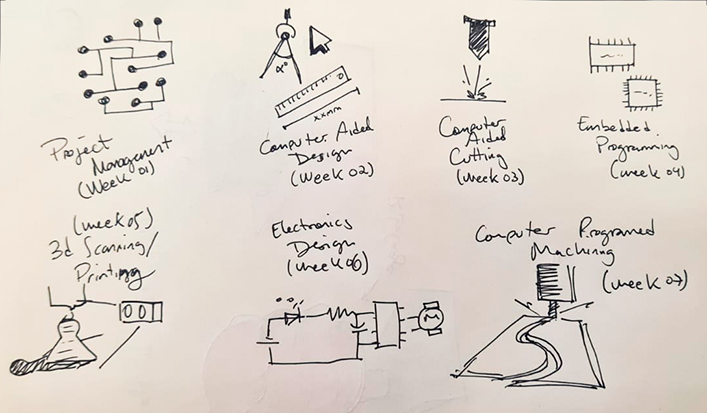 Project
Management
(Week 01)
4°
xxmm
Computer Aided
Design
(Week 02)
Computer
Aided
Cutting
(week 03)
Embedded
Programming
(week 04)
(week 05)
3d Scanning/
Printing
Electronics
Design
(week 06)
M
Computer Programed
Machining
(week 07)